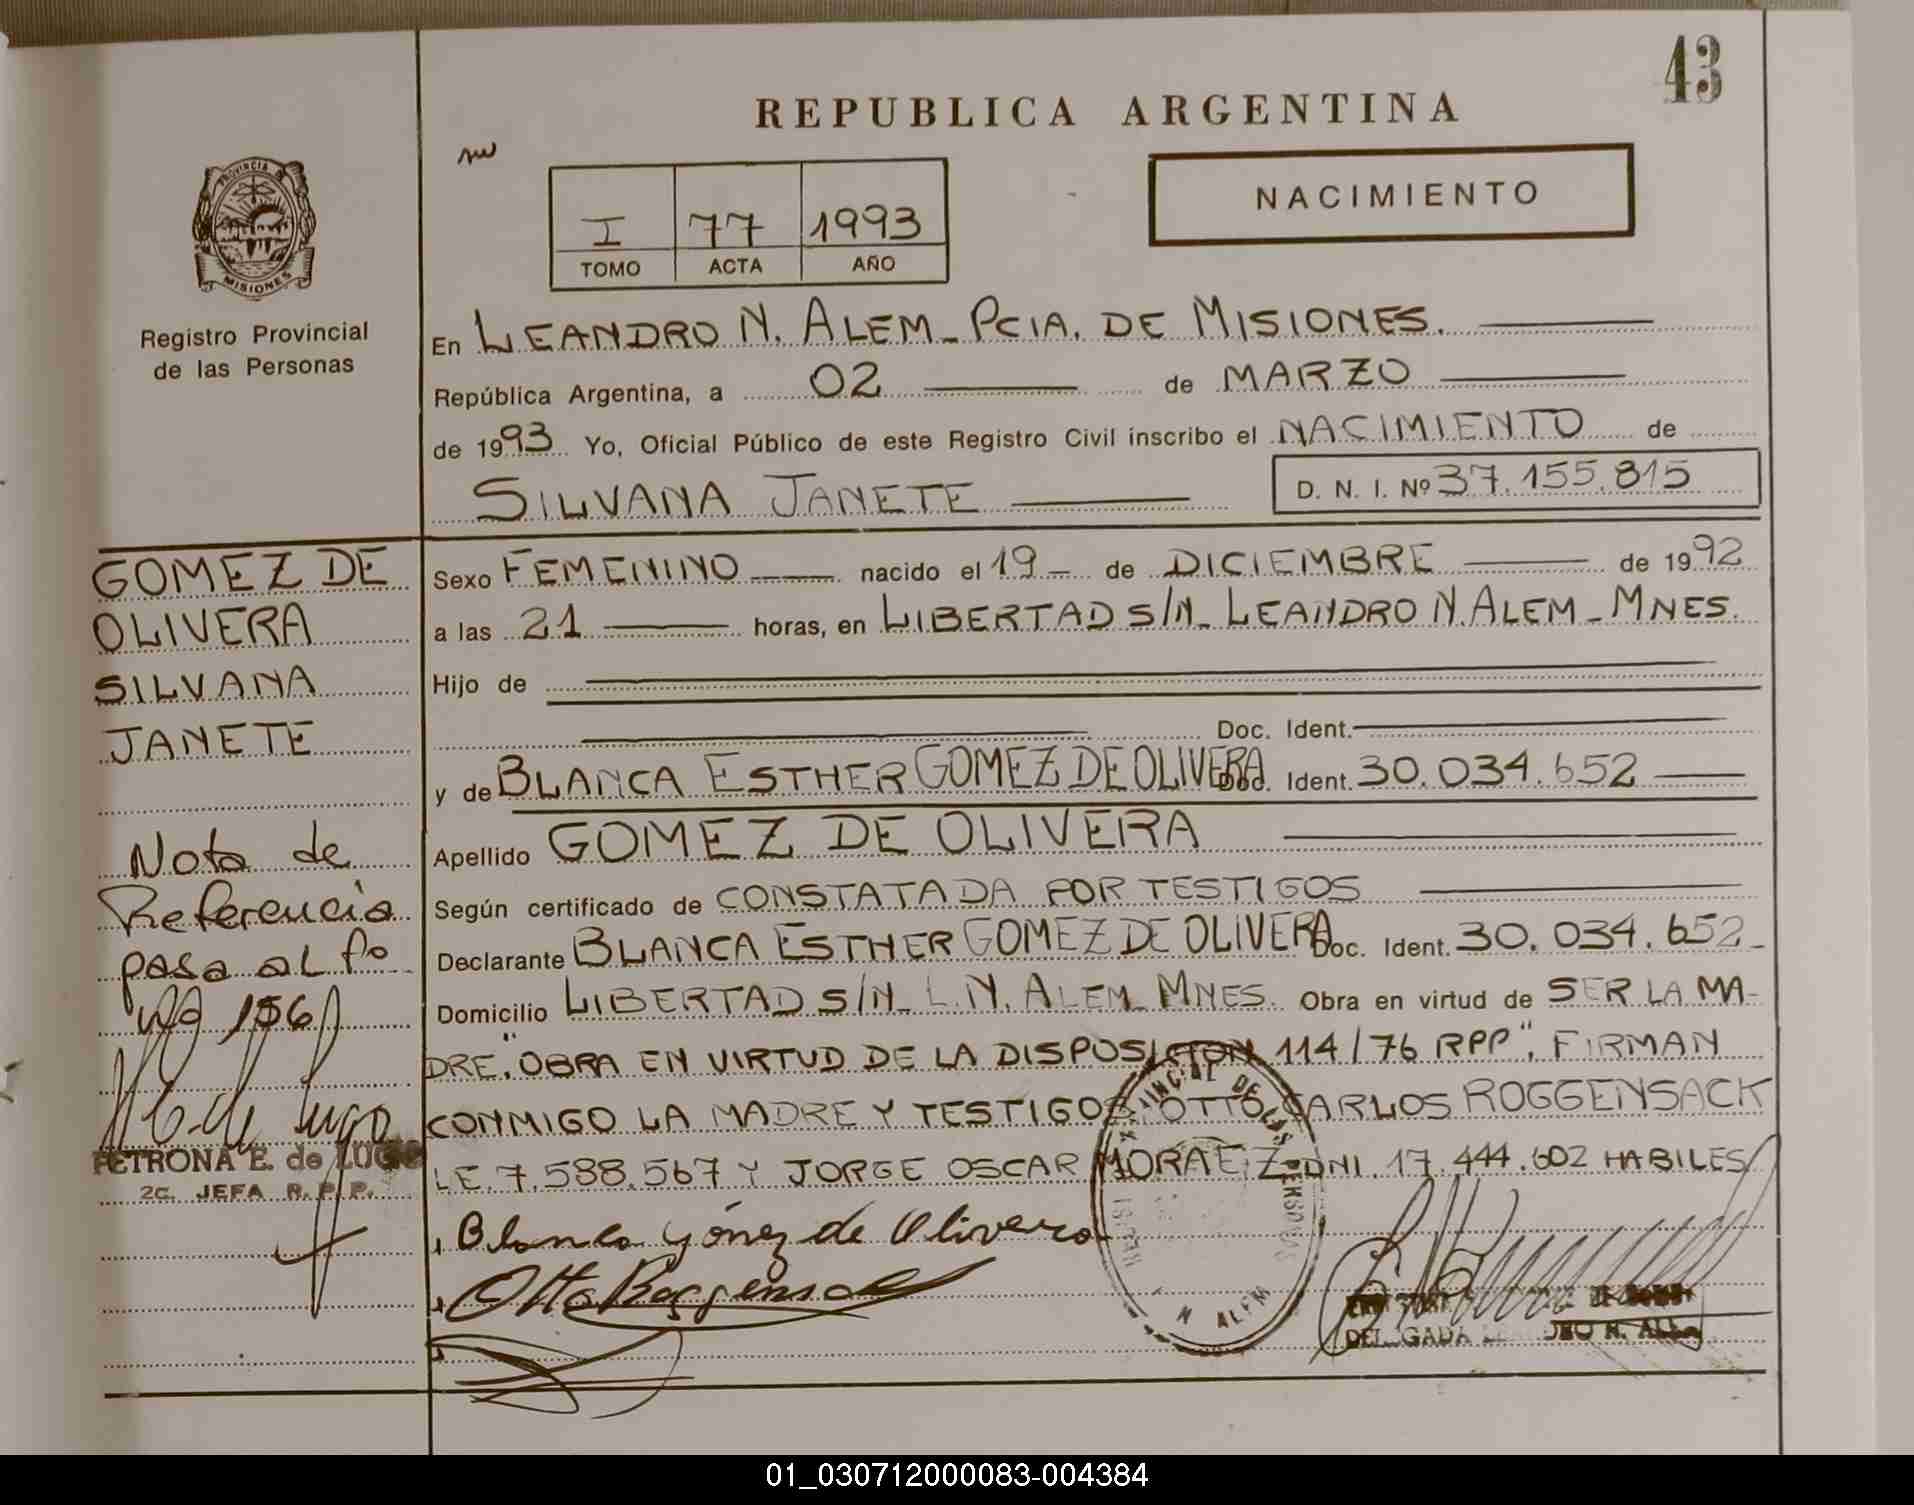 43
REPUBLICA ARGENTINA
NACIMIENTO
I 77 1993
TOMO ACTA AÑO
PROVINCIA DE
MISIONES
Registro Provincial
de las Personas
En LEANDRO N. ALEM_PCIA. DE MISIONES.
República Argentina, a 02 de MARZO
de 1993 Yo, Oficial Público de este Registro Civil inscribo el NACIMIENTO de
SILVANA JANETE D. N. I. Nº 37.155.815
GOMEZ DE
OLIVERA
SILVANA
JANETE
Nota de
Referencia
pasa al fo
Nº 156
PETRONA E. de LUGO
2a. JEFA R.P.P.
Sexo FEMENINO nacido el 19_ de DICIEMBRE de 1992
a las 21 horas, en LIBERTAD S/N_ LEANDRO N. ALEM_MNES.
Hijo de
Doc. Ident.
y de BLANCA ESTHER GOMEZ DE OLIVERA Doc. Ident. 30.034.652
Apellido GOMEZ DE OLIVERA
Según certificado de CONSTATADA POR TESTIGOS
Declarante BLANCA ESTHER GOMEZ DE OLIVERA Doc. Ident. 30.034.652_
Domicilio LIBERTAD S/N_ L.N. ALEM_MNES. Obra en virtud de SER LA MA-
DRE."OBRA EN VIRTUD DE LA DISPOSICION 114/76 RPP", FIRMAN
CONMIGO LA MADRE Y TESTIGOS OTTO CARLOS ROGGENSACK
L.E. 7.588.567 Y JORGE OSCAR MORAEZ DNI. 17.444.602 HABILES
Blanca Gómez de Olivera
Otto Roggensack
N ALEM
DELEGADA N. ALEM
01_030712000083-004384